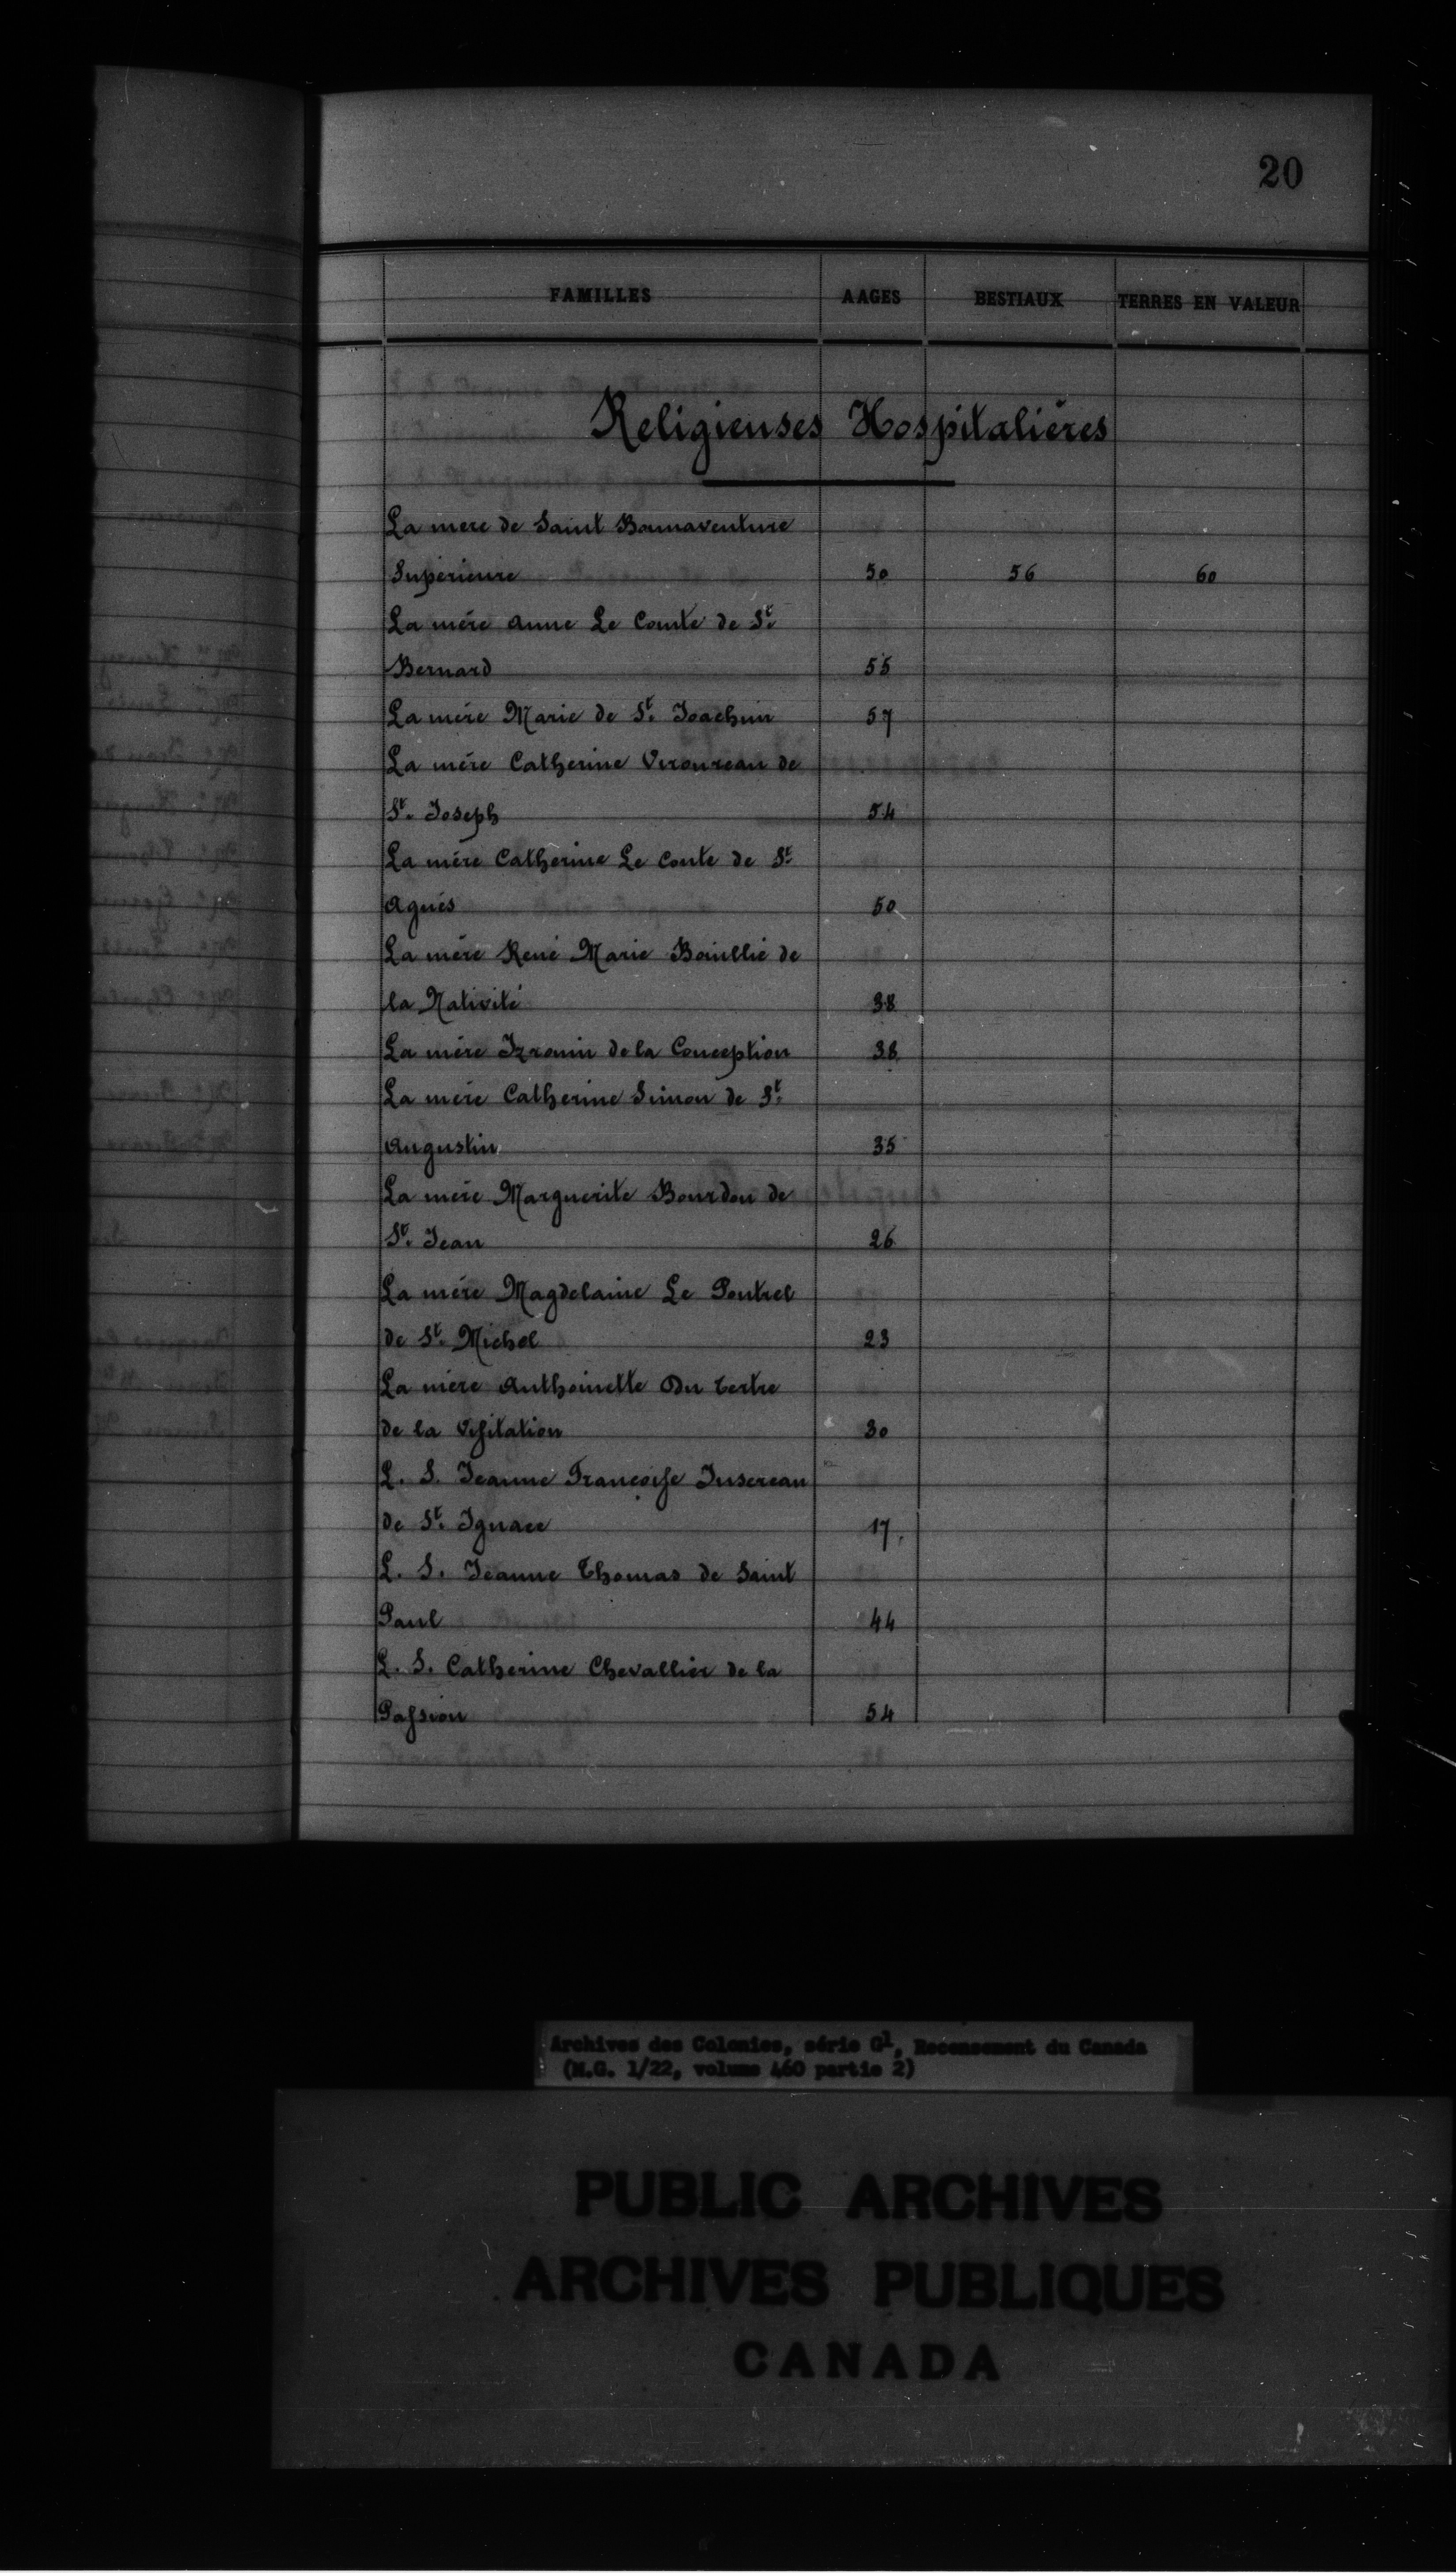 20
FAMILLES AAGES BESTIAUX TERRES EN VALEUR
Religieuses Hospitalières
La mere de Saint Bonnaventure
Supérieure 50 56 60
La mére Anne Le Comte de St.
Bernard 55
La mére Marie de St. Joachim 57
La mére Catherine Vironceau de
St. Joseph 54
La mére Catherine Le Conte de St.
Agnés 50
La mére René Marie Boullié de
la Nativité 38
La mére Izronin de la Conception 38
La mére Catherine Simon de St.
Augustin 35
La mére Marguerite Bourdon de
St. Jean 26
La mére Magdelaine Le Poutrel
de St. Michel 23
La mére Anthoinette Du Tertre
de la Visitation 30
L. S. Jeanne Françoise Jusereau
de St. Ignace 17
L. S. Jeanne Thomas de Saint
Paul 44
L. S. Catherine Chevallier de la
Passion 54
Archives des Colonies, série G1, Recensement du Canada
(M.G. 1/22, volume 460 partie 2)
PUBLIC ARCHIVES
ARCHIVES PUBLIQUES
CANADA